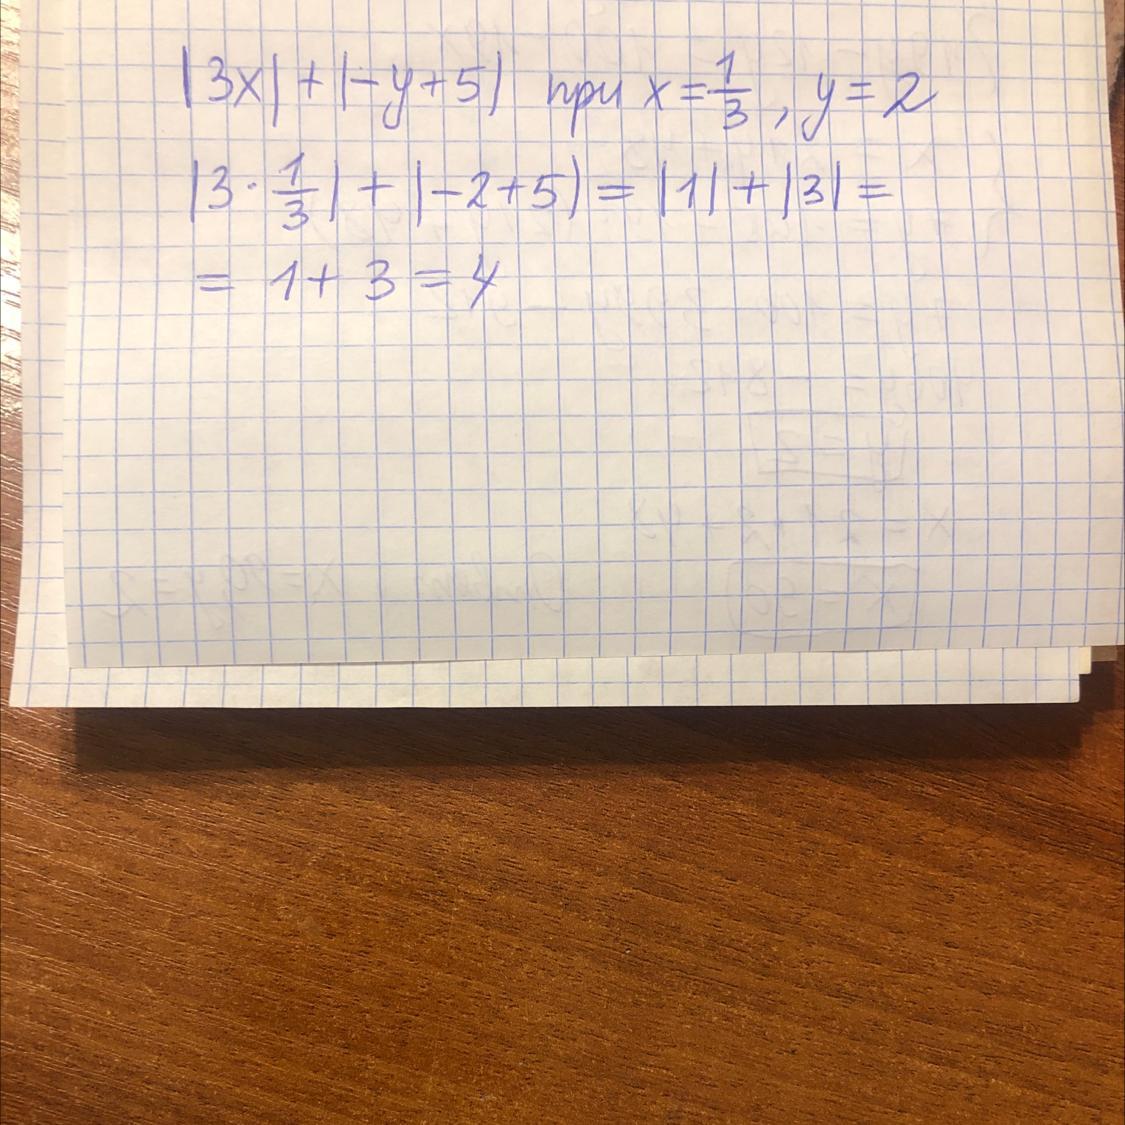 |3x| + |-y+5| при x = 1/3, y = 2
|3 · 1/3| + |-2+5| = |1| + |3| =
= 1 + 3 = 4